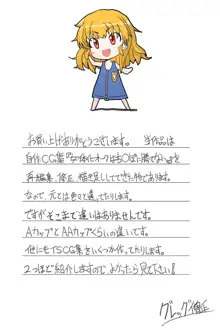 お買い上げありがとうございます。 当作品は
自作CG集『女体化オークは ち○ぽに勝てない』を
再編集、修正、描き足ししてできた物であります。
なので、元とは色々と違ってたりします。
ですがそこまで違いはありませしです。
AカップとAAカップくらいの違いです。
他にもTSCG集をいくつか作ってたりします。
2つほど紹介しますので よかったら見て下さい!